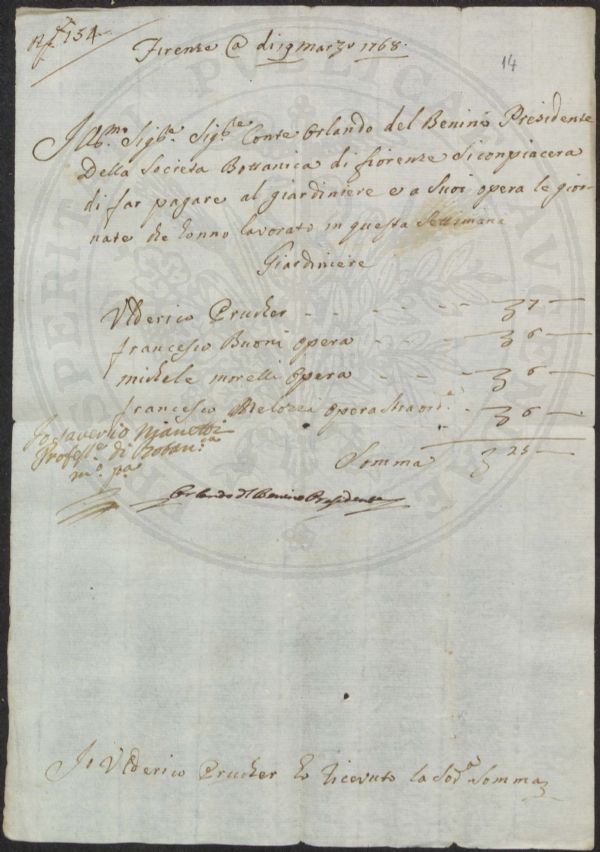 N° 154
Firenze @ di 19 marzo 1768
14
Ill:mo Sig:re Sig:re Conte Orlando del Benino Presidente
Della Societa Bottanica di fiorenze Si conpiacera
di far pagare al giardiniere e a Suoi opera le gior-
nate che honno lavorato in questa Settimana
Giardiniere
Vlderico Prucher - - - - - 7 —
francesco Buoni opera - - - 6 —
michele morelli opera - - - 6 —
francesco Melozzi opera straord:a - 6 —
Somma 25 —
Io Saverio Manetti
Profess:e di Botan:ca
m:o p:a
Orlando del Benino Presidente
Io Vlderico Prucher ho ricevuto la Sod:a Somma